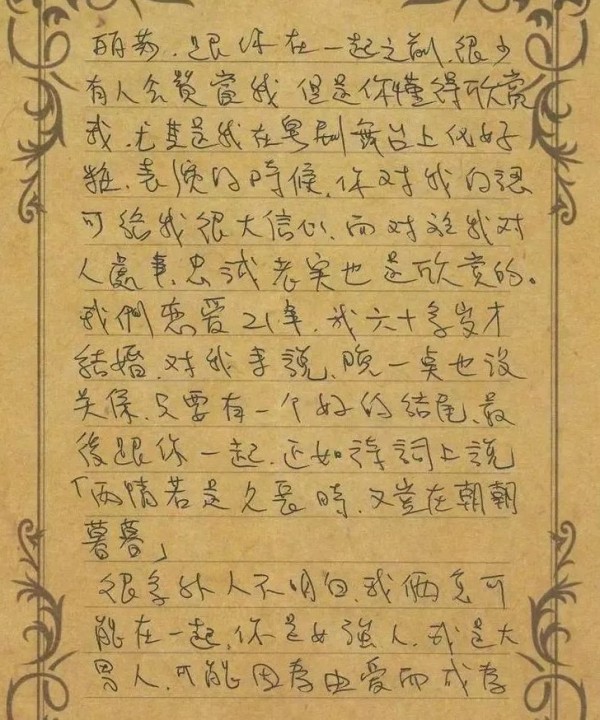 丽芬.跟你在一起之前,很少
有人会赞赏我.但是你懂得欣赏
我.尤其是我在粤剧舞台上
表演的時候.你对我的認
可給我很大信心.而对於我对
人處事,忠誠老实也是欣赏的。
我們恋爱21年.我六十多岁才
結婚.对我来說,晚一点也没
关係.只要有一个好的结尾.最
後跟你一起.正如诗詞上說
「两情若是久長時.又豈在朝朝
暮暮」
很多外人不明白.我俩怎可
能在一起.你是女强人.我是大
男人.可能因为由爱而成为